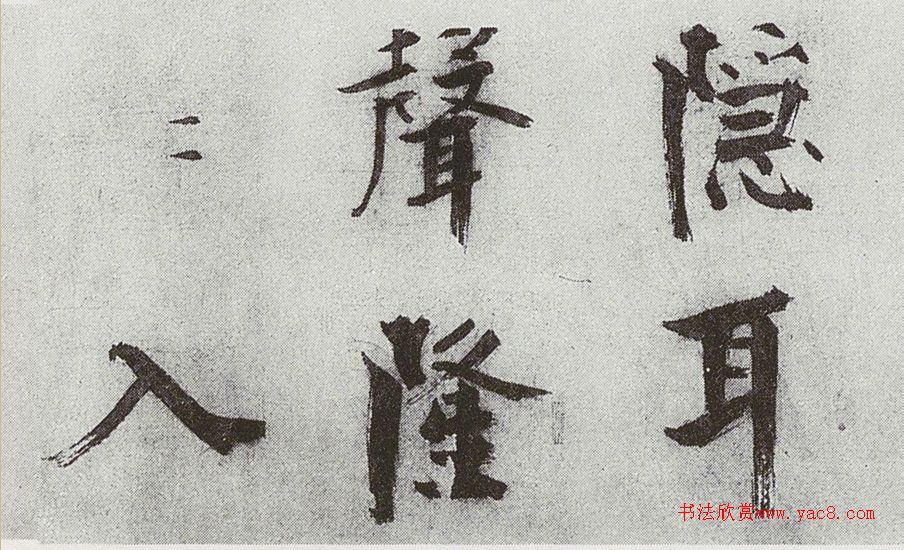 隱耳
聲隆
〻入
书法欣赏www.yac8.com